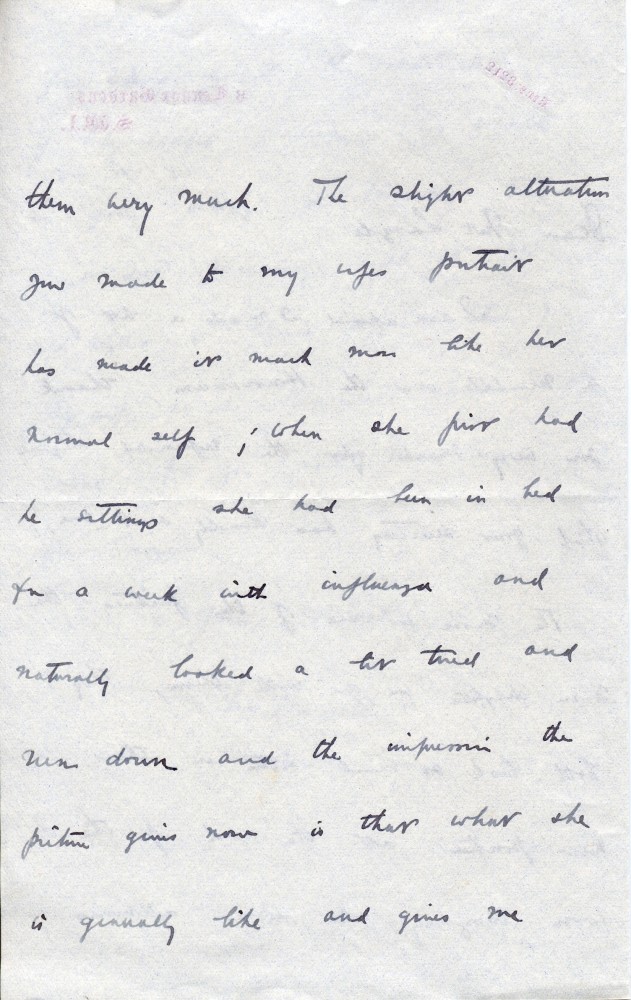 them very much. The slight alteration
you made to my wifes portrait
has made it much more like her
normal self; when she first had
he sittings she had been in bed
for a week with influenza and
naturally looked a bit tired and
run down and the impression the
picture gives now is that what she
is generally like and gives me